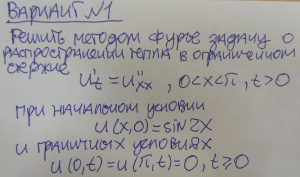 ВАРИАНТ №1
Решить методом Фурье задачу о
распространении тепла в ограниченном
стержне
U't = U''xx, 0<x<π, t>0
при начальном условии
u(x,0)=sin2x
и граничных условиях
u(0,t)=u(π,t)=0, t≥0